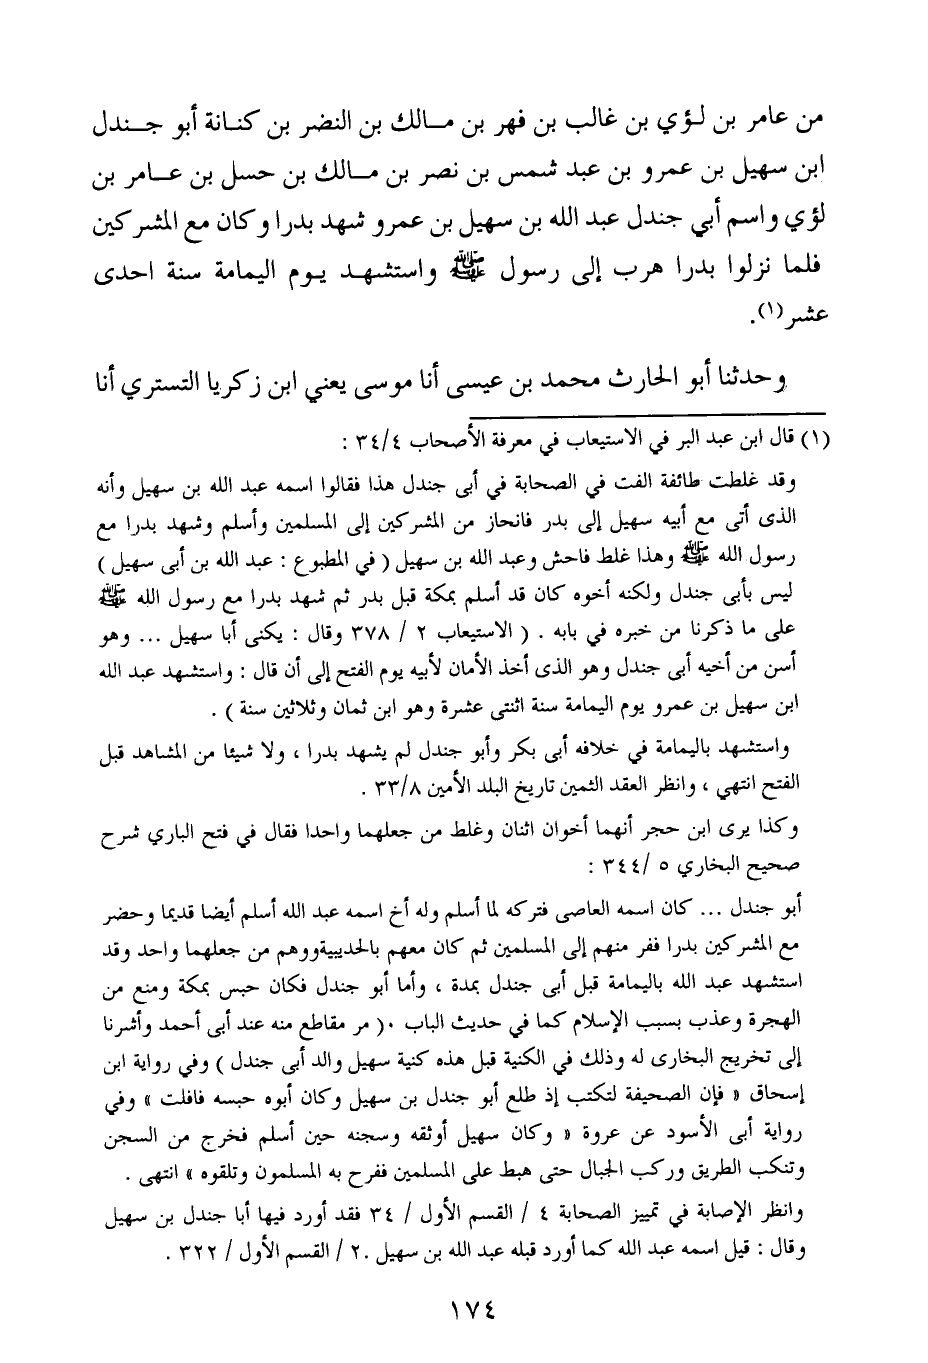 من عامر بن لؤي بن غالب بن فهر بن مالك بن النضر بن كنانة أبو جندل
ابن سهيل بن عمرو بن عبد شمس بن نصر بن مالك بن حسل بن عامر بن
لؤي واسم أبي جندل عبد الله بن سهيل بن عمرو شهد بدرا وكان مع المشركين
فلما نزلوا بدرا هرب إلى رسول ﷺ واستشهد يوم اليمامة سنة احدى
عشر(١).
وحدثنا أبو الحارث محمد بن عيسى أنا موسى يعني ابن زكريا التستري أنا
(١) قال ابن عبد البر في الاستيعاب في معرفة الأصحاب ٣٤/٤ :
وقد غلطت طائفة الفت في الصحابة في أبى جندل هذا فقالوا اسمه عبد الله بن سهيل وأنه
الذى أتى مع أبيه سهيل إلى بدر فانحاز من المشركين إلى المسلمين وأسلم وشهد بدرا مع
رسول الله ﷺ وهذا غلط فاحش وعبد الله بن سهيل ( في المطبوع : عبد الله بن أبى سهيل )
ليس بأبى جندل ولكنه أخوه كان قد أسلم بمكة قبل بدر ثم شهد بدرا مع رسول الله ﷺ
على ما ذكرنا من خبره في بابه . ( الاستيعاب ٢ / ٣٧٨ وقال : يكنى أبا سهيل ... وهو
أسن من أخيه أبى جندل وهو الذى أخذ الأمان لأبيه يوم الفتح إلى أن قال : واستشهد عبد الله
ابن سهيل بن عمرو يوم اليمامة سنة اثنتى عشرة وهو ابن ثمان وثلاثين سنة ) .
واستشهد باليمامة في خلافه أبى بكر وأبو جندل لم يشهد بدرا ، ولا شيئا من المشاهد قبل
الفتح انتهي ، وانظر العقد الثمين تاريخ البلد الأمين ٣٣/٨ .
وكذا يرى ابن حجر أنهما أخوان اثنان وغلط من جعلهما واحدا فقال في فتح الباري شرح
صحيح البخاري ٥ /٣٤٤ :
أبو جندل ... كان اسمه العاصى فتركه لما أسلم وله أخ اسمه عبد الله أسلم أيضا قديما وحضر
مع المشركين بدرا ففر منهم إلى المسلمين ثم كان معهم بالحديبيةووهم من جعلهما واحد وقد
استشهد عبد الله باليمامة قبل أبى جندل بمدة ، وأما أبو جندل فكان حبس بمكة ومنع من
الهجرة وعذب بسبب الإسلام كما في حديث الباب .( مر مقاطع منه عند أبى أحمد وأشرنا
إلى تخريج البخارى له وذلك في الكنية قبل هذه كنية سهيل والد أبى جندل ) وفي رواية ابن
إسحاق « فإن الصحيفة لتكتب إذ طلع أبو جندل بن سهيل وكان أبوه حبسه فافلت » وفي
رواية أبى الأسود عن عروة « وكان سهيل أوثقه وسجنه حين أسلم فخرج من السجن
وتنكب الطريق وركب الجبال حتى هبط على المسلمين ففرح به المسلمون وتلقوه » انتهى .
وانظر الإصابة في تمييز الصحابة ٤ / القسم الأول / ٣٤ فقد أورد فيها أبا جندل بن سهيل
وقال : قيل اسمه عبد الله كما أورد قبله عبد الله بن سهيل .٢ / القسم الأول / ٣٢٢ .
١٧٤